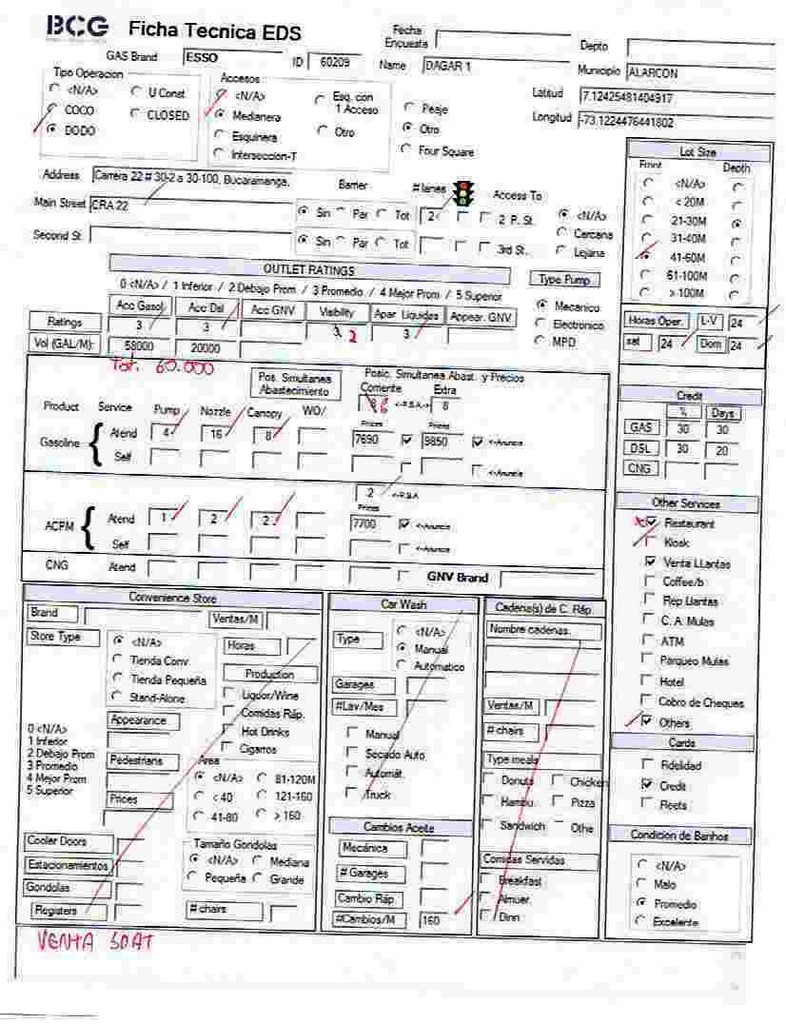 BCG Ficha Tecnica EDS
Fecha Encuesta
Depto
GAS Brand ESSO ID 60209 Name DAGAR 1 Municipio ALARCON
Tipo Operacion
<N/A> U Const
COCO CLOSED
DODO
Accesos
<N/A> Esq. con 1 Acceso
Medianera
Esquinera Otro
Interseccion-T
Peaje
Otro
Four Square
Latitud 7.12425481404917
Longitud -73.1224476441802
Address Carrera 22 # 30-2 a 30-100, Bucaramanga, Barrier # lanes Access To
Main Street CRA 22 Sin Par Tot 2 2 P. St. <N/A>
Cercana
Second St. Sin Par Tot 3rd St. Lejana
Lot Size
Front Depth
<N/A>
< 20M
21-30M
31-40M
41-60M
61-100M
> 100M
OUTLET RATINGS
0 <N/A> / 1 Inferior / 2 Debajo Prom / 3 Promedio / 4 Mejor Prom / 5 Superior
Acc Gasol Acc Dsl Acc GNV Visibility Apar Liquidos Appear. GNV
Ratings 3 3 2 3
Vol (GAL/M): 58000 20000
Tot. 60.000
Type Pump
Mecanico
Electronico
MPD
Horas Oper. L-V 24
sat 24 Dom 24
Pos. Simultanea Abastecimiento
Posic. Simultanea Abast. y Precios
Corriente Extra
<-P.S.A-> 8
Product Service Pump Nozzle Canopy WO/
Prices Prices
Gasoline Atend 4 16 8 7690 9850 <-Anuncia
Self <-Anuncia
2 <-P.S.A
Prices
ACPM Atend 1 2 2 7700 <-Anuncia
Self <-Anuncia
CNG Atend GNV Brand
Credit
% Days
GAS 30 30
DSL 30 20
CNG
Other Services
Restaurant
Kiosk
Venta LLantas
Coffee/b
Rep Llantas
C. A. Mulas
ATM
Parqueo Mulas
Hotel
Cobro de Cheques
Others
Cards
Fidelidad
Credit
Fleets
Condicion de Banhos
<N/A>
Malo
Promedio
Excelente
Convenience Store
Brand Ventas/M
Store Type
<N/A>
Tienda Conv.
Tienda Pequeña
Stand-Alone
Horas
Production
Liquor/Wine
Comidas Ráp.
Hot Drinks
Cigarros
0 <N/A>
1 Inferior
2 Debajo Prom
3 Promedio
4 Mejor Prom
5 Superior
Appearance
Pedestrians
Prices
Area
<N/A> 81-120M
< 40 121-160
41-80 > 160
Cooler Doors
Estacionamientos
Gondolas
Registers
Tamaño Gondolas
<N/A> Mediana
Pequeña Grande
# chairs
Car Wash
Type
<N/A>
Manual
Automatico
Garages
#Lav/Mes
Manual
Secado Auto
Automát.
Truck
Cambios Aceite
Mecánica
# Garages
Cambio Ráp.
#Cambios/M 160
Cadena(s) de C. Ráp.
Nombre cadenas.
Ventas/M
# chairs
Type meals
Donuts Chicken
Hambu. Pizza
Sandwich Othe
Comidas Servidas
Breakfast
Almuer.
Dinn
VENTA SOAT